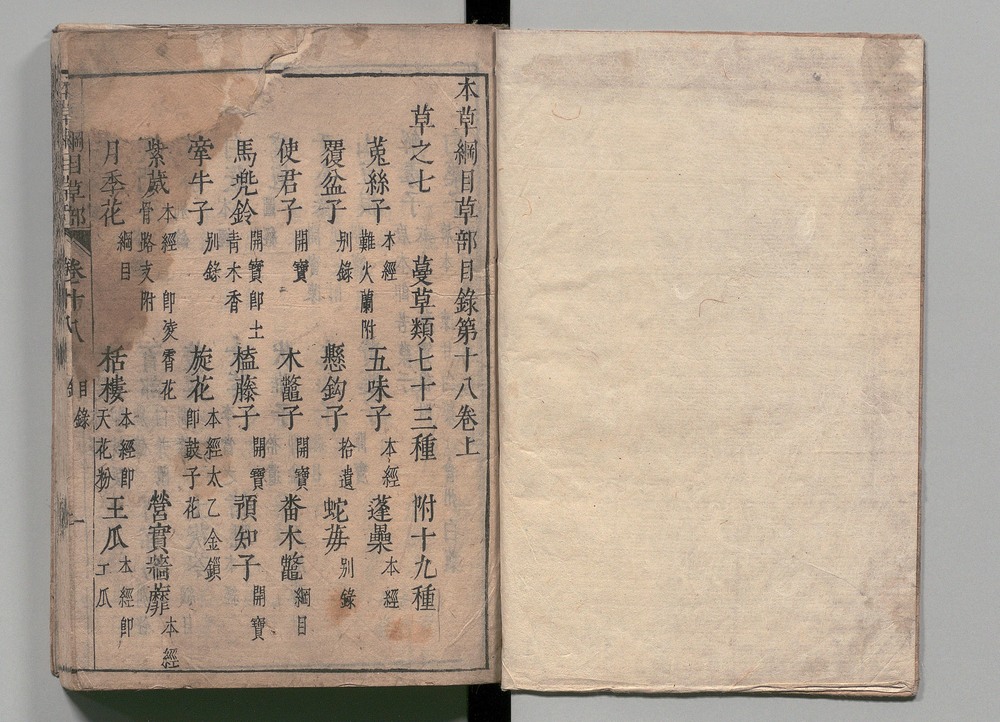 本草綱目草部目錄第十八卷上
草之七 蔓草類七十三種 附十九種
菟絲子 本經 難火蘭附 五味子 本經 蓬虆 本經
覆盆子 別錄 懸鈎子 拾遺 蛇苺 別錄
使君子 開寶 木鼈子 開寶 番木鼈 綱目
馬兜鈴 開寶即土青木香 榼藤子 開寶 預知子 開寶
牽牛子 別錄 旋花 本經 即鼓子花 太乙金鎖
紫葳 本經 即淩霄花 骨路支附 營實牆蘼 本經
月季花 綱目 栝樓 本經即天花粉 王瓜 本經即土瓜
綱目草部 卷十八 目錄 一